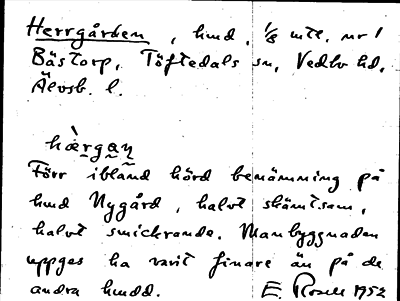 Herrgården, hmd, 1/8 mtl. nr 1
Båstorp, Töftedals sn, Vedbo hd,
Älvsb. l.
hæ̀rgan̥
Förr ibland hörd benämning på
hmd Nygård, halvt skämtsam,
halvt smickrande. Manbyggnaden
uppges ha varit finare än på de
andra hmdd. E. 1952